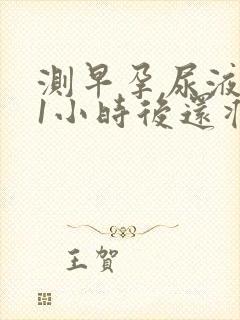 測早孕尿液
1小時後還
王賀